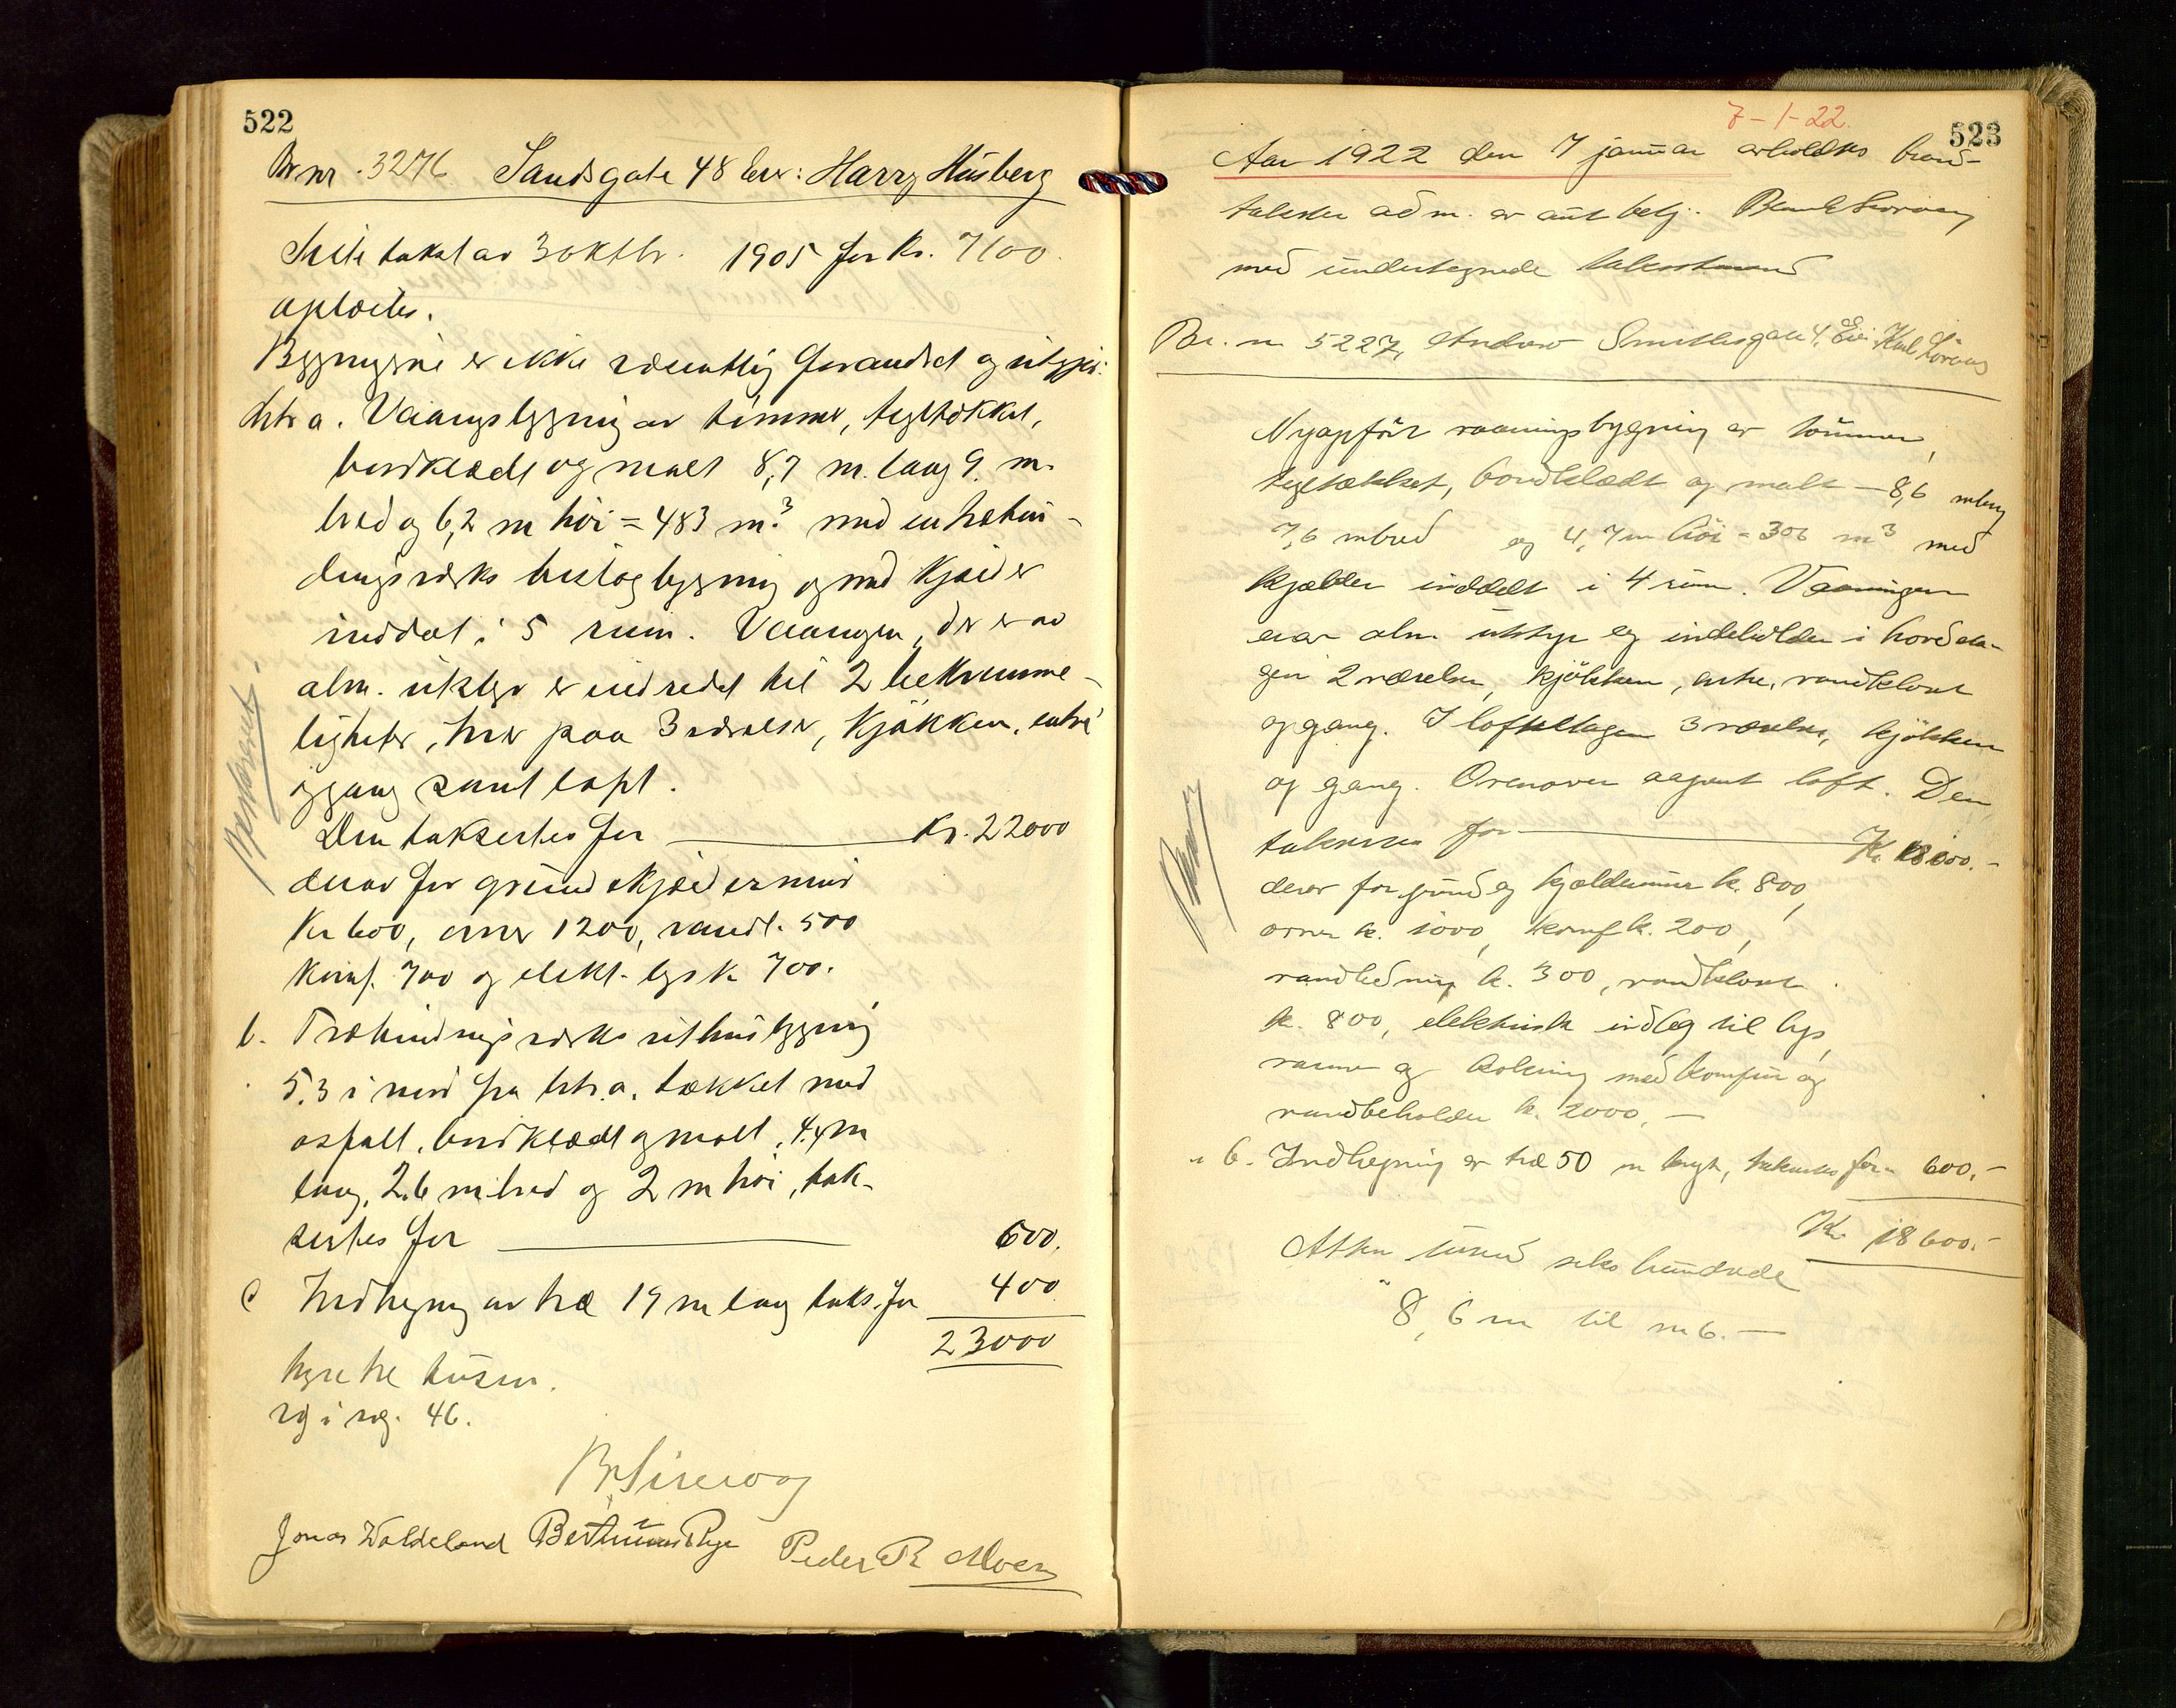 522
Br nr. 3276 Sandsgate 48 Eier: Harry Husberg
Siste takst av 3 oktbr. 1905 for Kr. 7100
oplæstes.
Bygningene er ikke væsentlig forandret og utgjør:
Litr a. Vaaningsbygning av tømmer, tegltækket,
bordklædt og malt 8,7 m. lang 9 m.
bred og 6,2 m høi = 483 m.³ med en træbin-
dingsverks bislagbygning og med kjælder
inddelt i 5 rum. Vaaningen, der er av
alm. utstyr er indredet til 2 bekvemme-
ligheter, hver paa 3 værelser, kjøkken, entré
og gang samt loft.
Den takseertes for Kr. 22000
derav for grund & kjældermur
Kr 600, ovner 1200, vandl. 500
komf. 700 og elekt. lys k 700.
b. Træbindingsverks uthusbygning
5.3 i nord fra litr. a. tækket med
asfalt, bordklædt og malt, 4.4 m
lang, 2.6 m bred og 2 m høi, tak-
sertes for 600.
c Indhegning av træ 19 m lang taks. for 400
23000
tyve tre tusen.
46.
Jonas Woldeland Peder R. Moen
7-1-22.
523
Aar 1922 den 7 januar avholdtes brand-
takster adm. av
med undertegnede takstmænd
Br. nr 5227, Andrew Smithsgate 4, Eier Karl
Nyopført vaaningsbygning av tømmer,
tegltækket, bordklædt og malt - 8,6 m lang
7,6 m bred og 4,7 m høi = 306 m³ med
kjælder inddelt i 4 rum. Vaaningen
er av alm. utstyr og indeholder i hoveda-
gen 2 værelser, kjøkken, entre, vandklosett
og gang. I loftsetagen 3 værelser, kjøkken
og gang. Ovenover aapent loft. Den
takseres for Kr 18000.-
derav for grund og kjældermur k. 800,
ovner k. 1000, komf k. 200,
vandledning k. 300, vandklosett
k. 800, elektrisk indlæg til lys,
varme og kokning med komfur og
vandbeholder k. 2000.-
" b. Indhegning av træ 50 m langt, takseres for " 600.-
Kr 18600.-
Atten tusen seks hundrede
" 8,6 m til nr 6.-